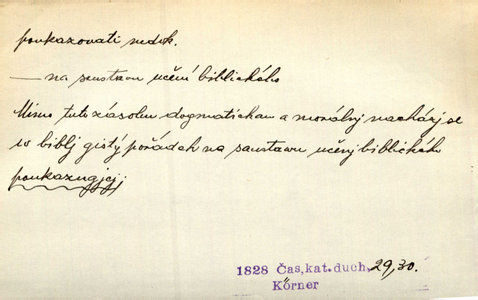 poukazovati nedok.
— na saustavu učení biblického
Mimo tuto zásobu dogmatickau a morálnj nacházj se
w biblj gistý pořádek na saustawu učenj biblického
poukazugjcj;
1828 Čas. kat. duch. 29,30.
Körner